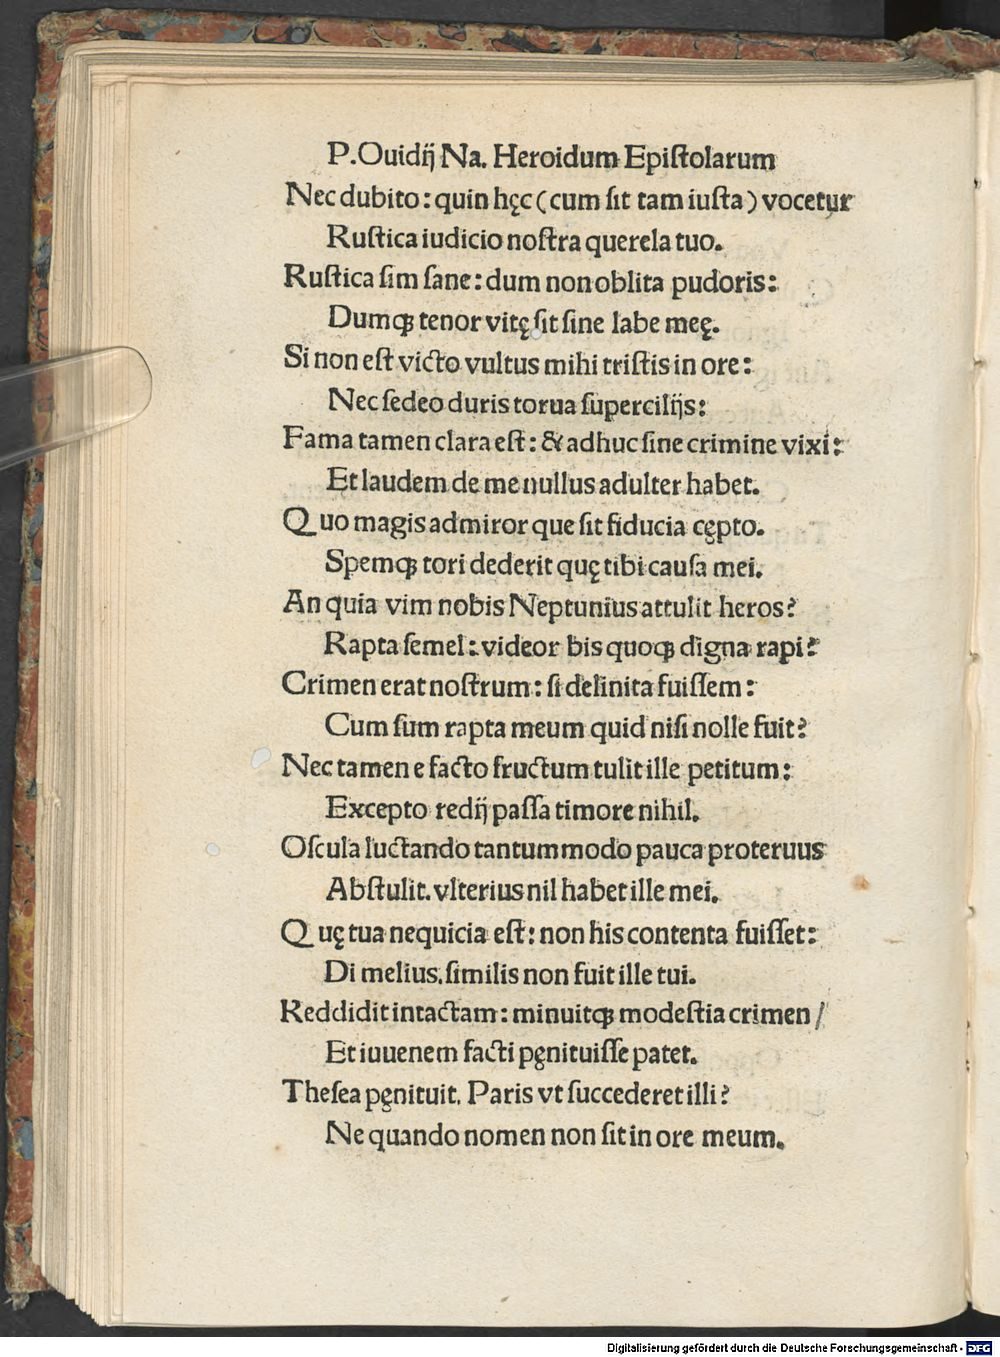 P.Ouidij Na. Heroidum Epiſtolarum
Nec dubito: quin hęc (cum ſit tam iuſta) vocetur
Ruſtica iudicio noſtra querela tuo.
Ruſtica ſim ſane: dum non oblita pudoris:
Dumqꝫ tenor vitę ſit ſine labe meę.
Si non eſt victo vultus mihi triſtis in ore:
Nec ſedeo duris torua ſupercilijs:
Fama tamen clara eſt: & adhuc ſine crimine vixi:
Et laudem de me nullus adulter habet.
Quo magis admiror que ſit fiducia cępto.
Spemqꝫ tori dederit quę tibi cauſa mei.
An quia vim nobis Neptunius attulit heros?
Rapta ſemel: videor bis quoqꝫ digna rapi?
Crimen erat noſtrum: ſi delinita fuiſſem:
Cum ſum rapta meum quid niſi nolle fuit?
Nec tamen e facto fructum tulit ille petitum:
Excepto redij paſſa timore nihil.
Oſcula luctando tantummodo pauca proteruus
Abſtulit. vlterius nil habet ille mei.
Quę tua nequicia eſt: non his contenta fuiſſet:
Di melius. ſimilis non fuit ille tui.
Reddidit intactam: minuitqꝫ modeſtia crimen /
Et iuuenem facti pęnituiſſe patet.
Theſea pęnituit. Paris vt ſuccederet illi?
Ne quando nomen non ſit in ore meum.
Digitalisierung gefördert durch die Deutsche Forschungsgemeinschaft - DFG